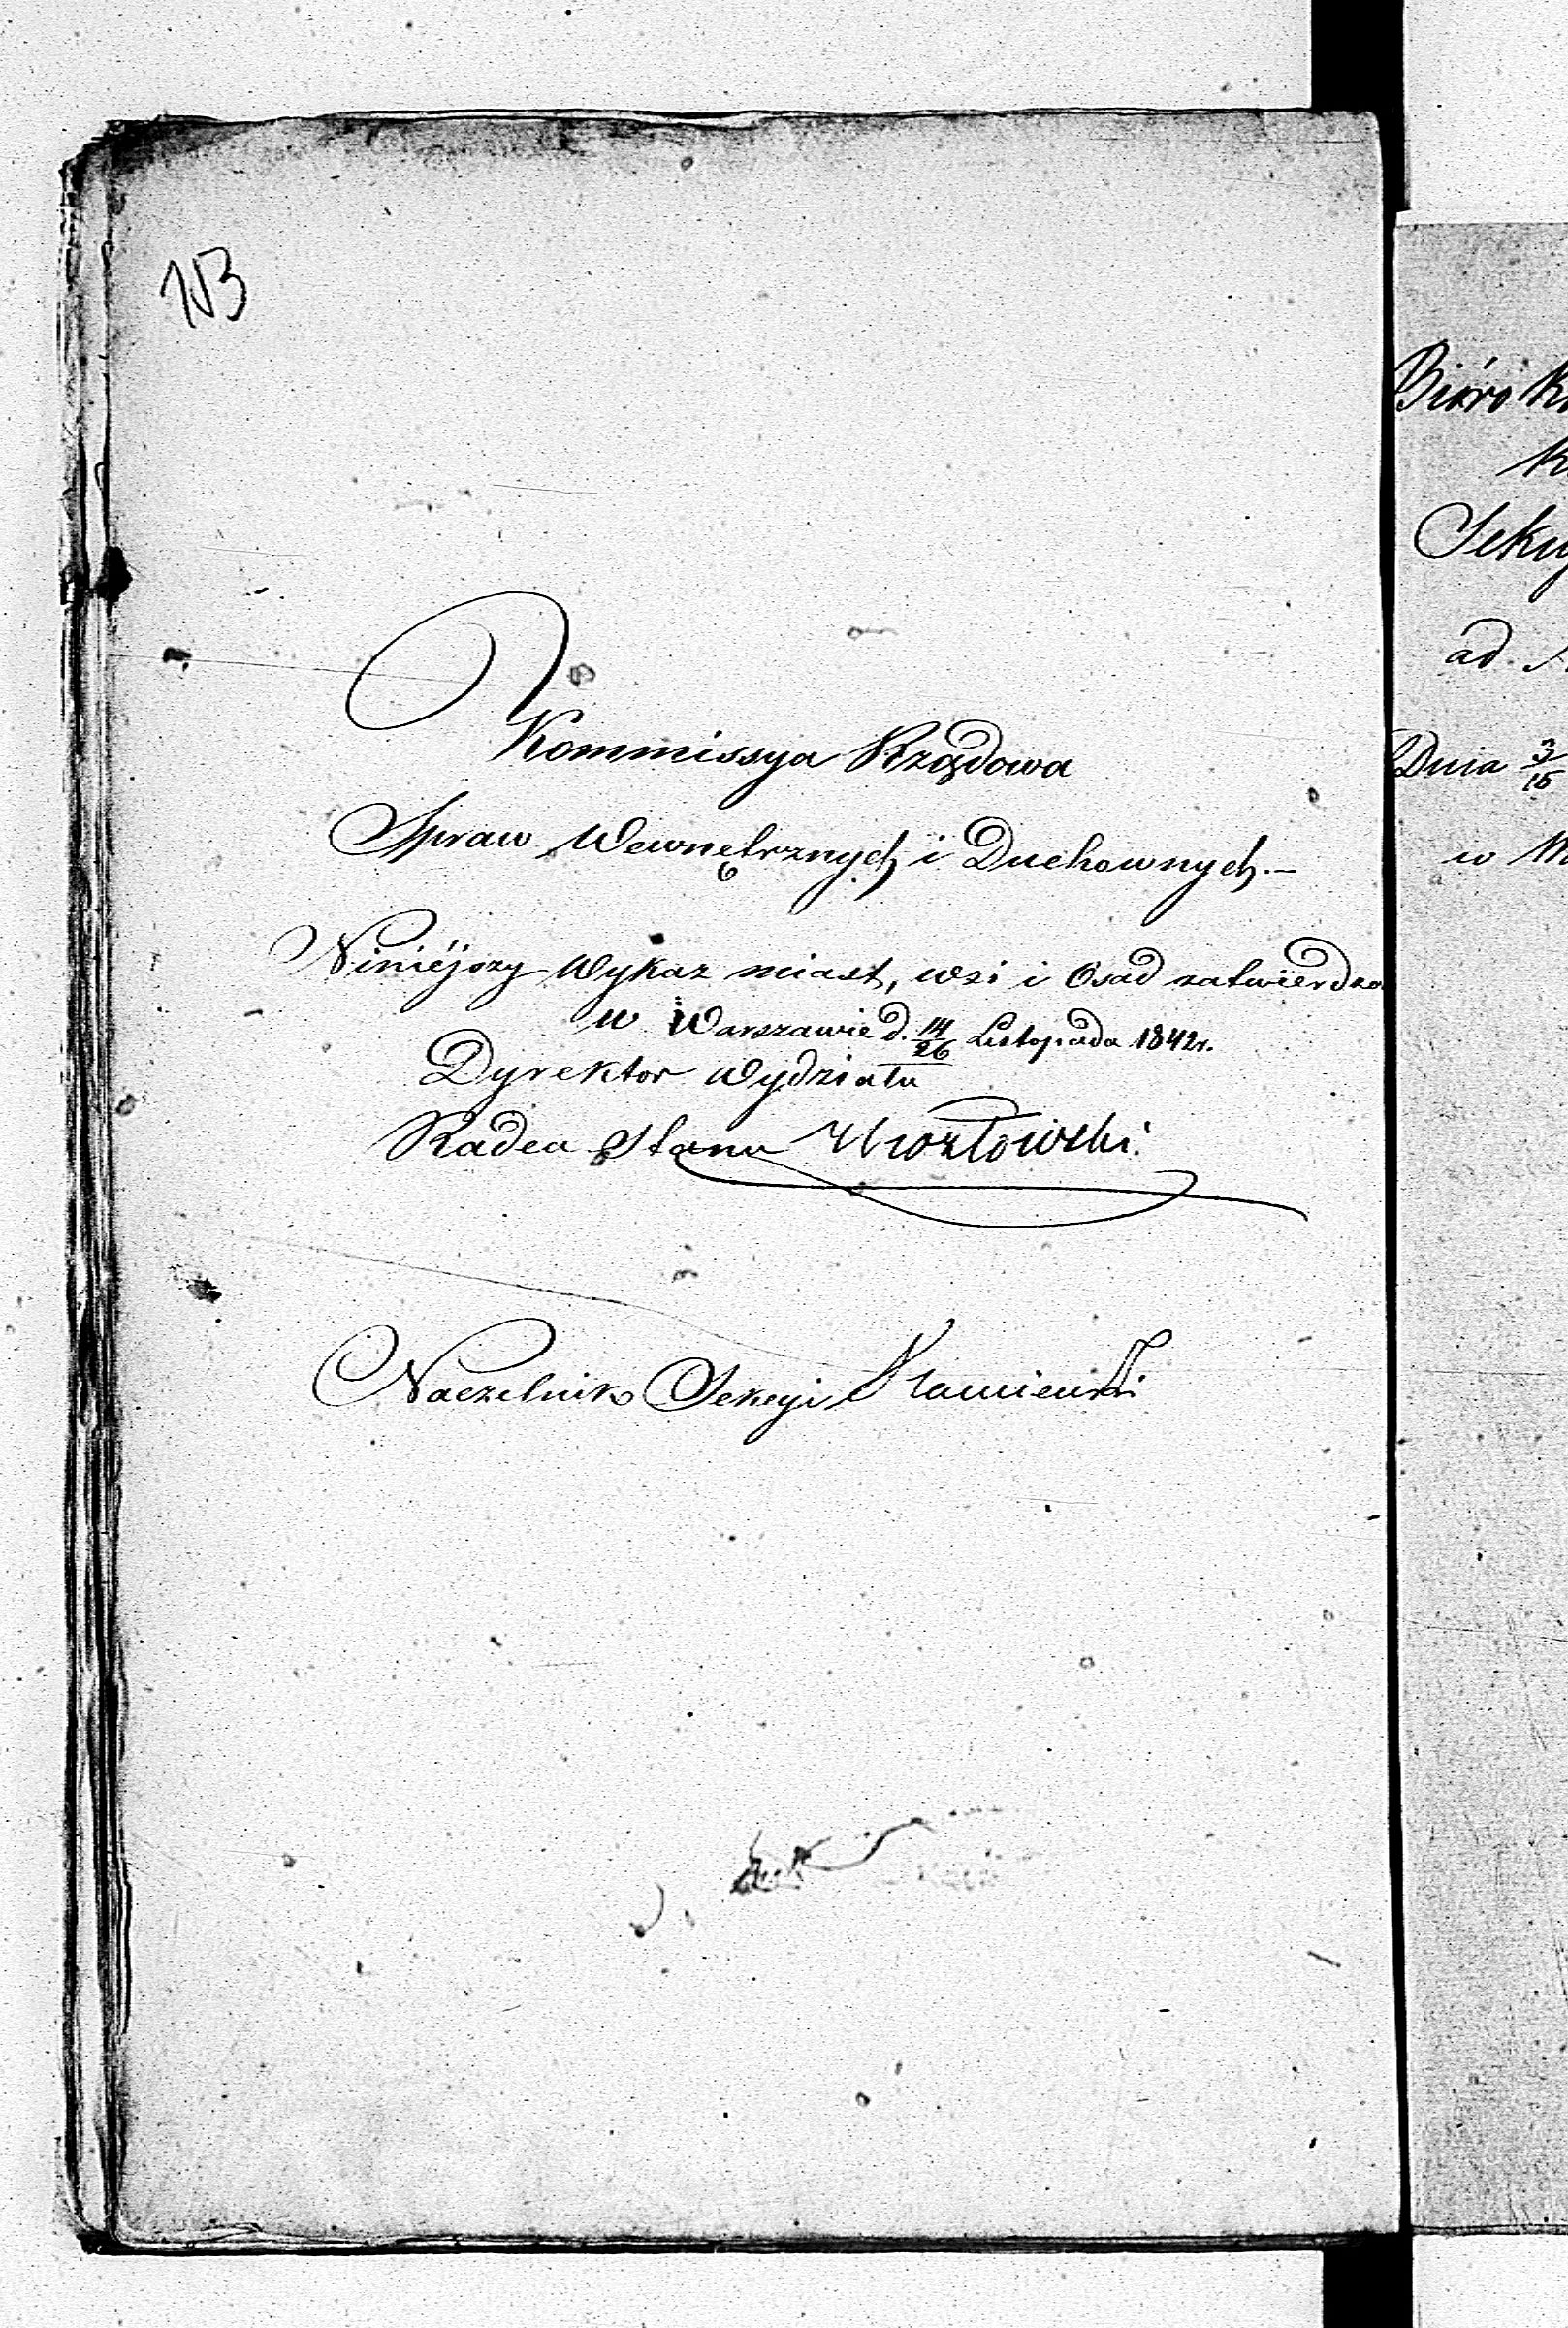 NB
Kommissya Rządowa
Spraw Wewnętrznych i Duchownych.—
Niniéjszy Wykaz miast, wsi i Osad zatwierdza.
w Warszawie d. 14/26 Listopada 1842 r.
Dyrektor Wydziału
Radca Stanu
Naczelnik Sekcyi Kamieński
Bióro
ad.
Dnia 3/15
w